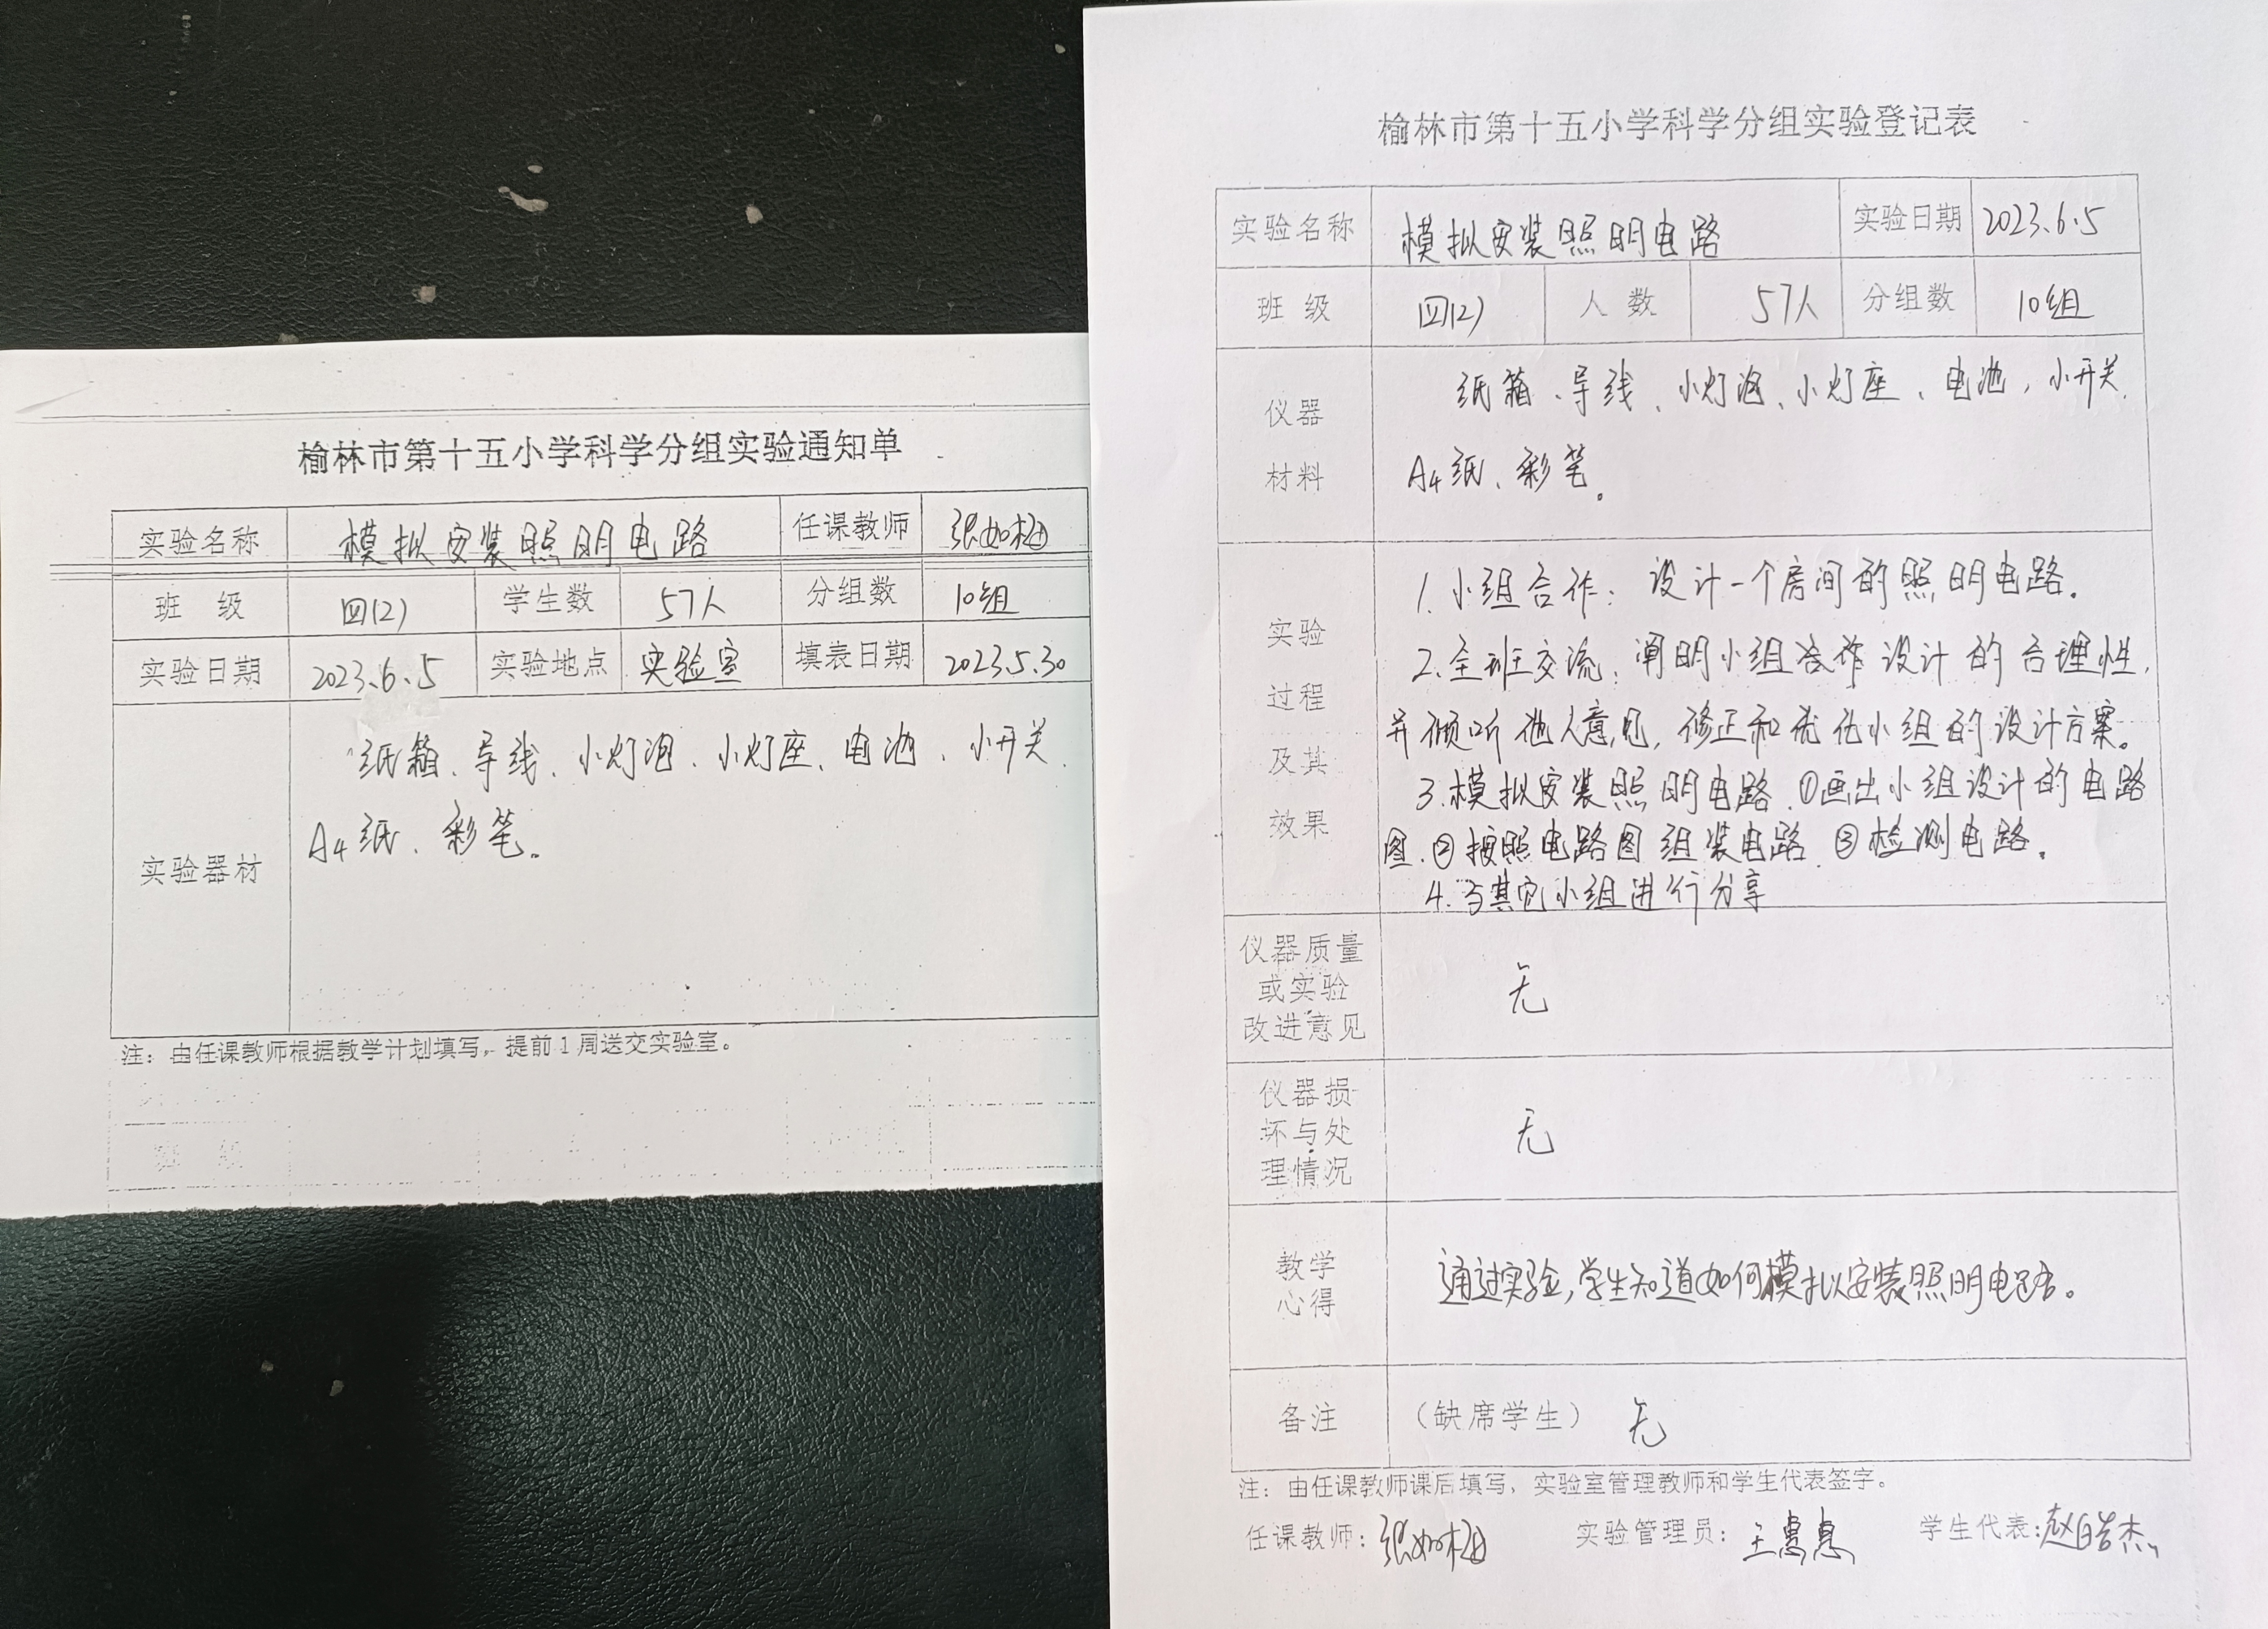 榆林市第十五小学科学分组实验通知单
实验名称 模拟安装照明电路 任课教师 张如梅
班 级 四(2) 学生数 57人 分组数 10组
实验日期 2023.6.5 实验地点 实验室 填表日期 2023.5.30
实验器材
纸箱、导线、小灯泡、小灯座、电池、小开关
A4纸、彩笔。
注：由任课教师根据教学计划填写，提前1周送交实验室。
班 级
榆林市第十五小学科学分组实验登记表
实验名称 模拟安装照明电路 实验日期 2023.6.5
班 级 四(2) 人 数 57人 分组数 10组
仪器
材料
纸箱、导线、小灯泡、小灯座、电池，小开关
A4纸、彩笔。
实验
过程
及其
效果
1.小组合作：设计一个房间的照明电路。
2.全班交流：阐明小组合作设计的合理性，
并倾听他人意见，修正和优化小组的设计方案。
3.模拟安装照明电路.①画出小组设计的电路
图.②按照电路图组装电路.③检测电路。
4.与其它小组进行分享
仪器质量
或实验
改进意见
无
仪器损
坏与处
理情况
无
教学
心得
通过实验,学生知道如何模拟安装照明电路。
备注 （缺席学生） 无
注：由任课教师课后填写，实验室管理教师和学生代表签字。
任课教师：张如梅 实验管理员：王惠惠 学生代表：赵皓杰